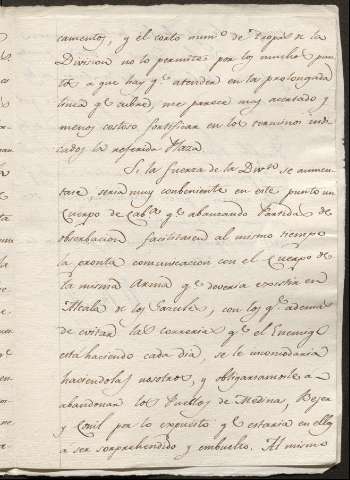 camentos, y el corto num.o de Tropas de la
Division no lo permite, por los muchos pun
tos a que hay q.e atender en la prolongada
linea q.e cubre, me parece muy acertado y
menos costoso fortificar en los terminos indi
cados la referida Plaza.
Si la fuerza de la Div.on se aumen
tase, seria muy conbeniente en este punto un
Cuerpo de Cab.a q.e abanzando Partidas de
obserbacion facilitasen al mismo tiempo
la pronta comunicacion con el Cuerpo de
la misma Arma q.e deveria existir en
Alcala de los Gazules, con los q.e ademas
de evitar las correrias q.e el Enemigo
está haciendo cada dia, se le incomodaria
haciendolas nosotros, y obligariamosle a
abandonar los Pueblos de Medina, Bejer
y Conil por lo expuesto q.e estaria en ellos
á ser sorprehendido y embuelto. Al mismo